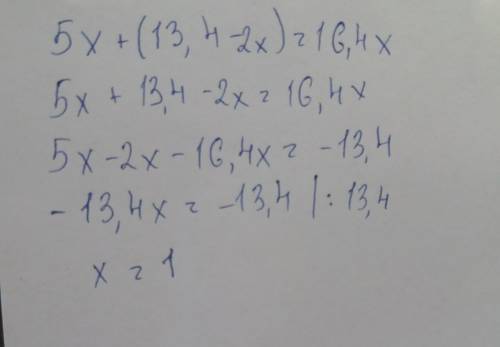 5x + (13,4-2x) = 16,4x
5x + 13,4 - 2x = 16,4x
5x - 2x - 16,4x = -13,4
- 13,4x = -13,4 | : 13,4
x = 1